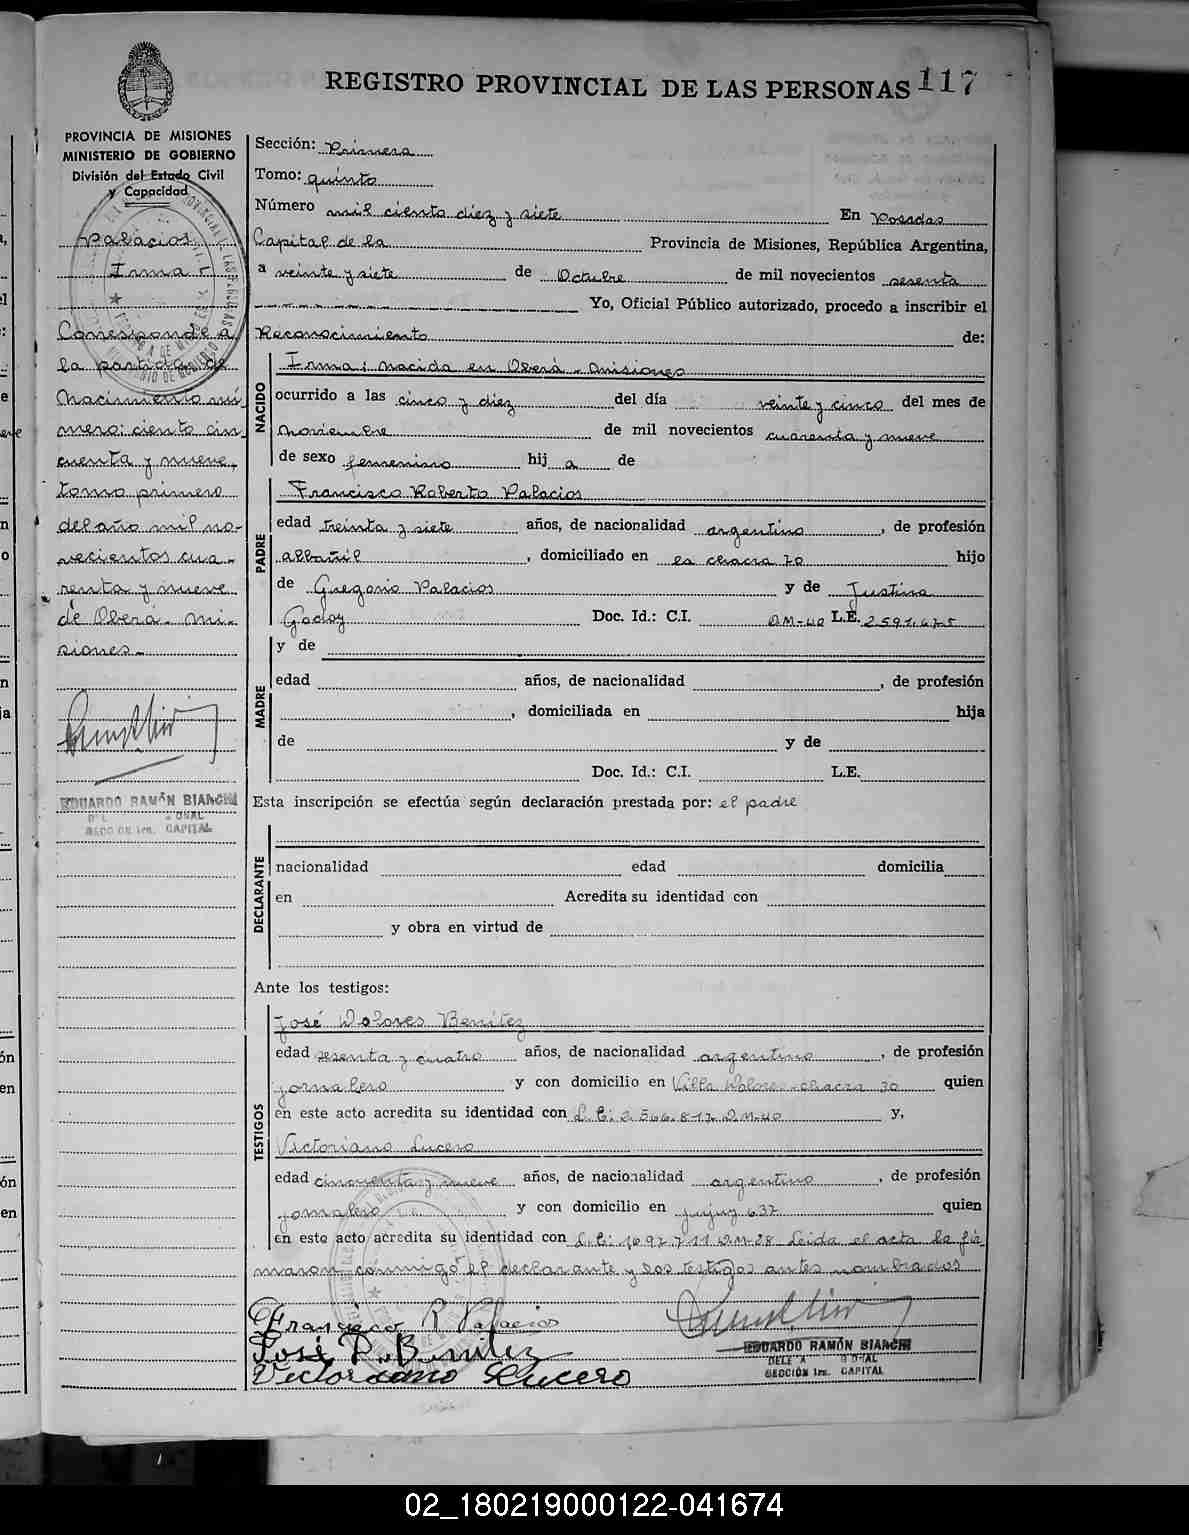 REGISTRO PROVINCIAL DE LAS PERSONAS 117
PROVINCIA DE MISIONES
MINISTERIO DE GOBIERNO
División del Estado Civil
y Capacidad
Palacios
Irma
Corresponde a
la partida de
Nacimiento nú-
mero: ciento cin-
cuenta y nueve,
tomo primero
del año mil no-
vecientos cua-
renta y nueve
de Oberá - Mi-
siones.-
EDUARDO RAMÓN BIANCHI
CAPITAL
Sección: Primera
Tomo: quinto
Número mil ciento diez y siete En Posadas
Capital de la Provincia de Misiones, República Argentina,
a veinte y siete de Octubre de mil novecientos sesenta
Yo, Oficial Público autorizado, procedo a inscribir el
Reconocimiento de:
NACIDO
Irma: nacida en Oberá - Misiones
ocurrido a las cinco y diez del día veinte y cinco del mes de
Noviembre de mil novecientos cuarenta y nueve
de sexo femenino hij a de
PADRE
Francisco Roberto Palacios
edad treinta y siete años, de nacionalidad argentino, de profesión
albañil, domiciliado en la chacra 70 hijo
de Gregorio Palacios y de Justina
Godoy Doc. Id.: C.I. DM-40 L.E. 2591.675
MADRE
y de
edad años, de nacionalidad , de profesión
, domiciliada en hija
de y de
Doc. Id.: C.I. L.E.
Esta inscripción se efectúa según declaración prestada por: el padre
DECLARANTE
nacionalidad edad domicilia
en Acredita su identidad con
y obra en virtud de
Ante los testigos:
TESTIGOS
José Dolores Benítez
edad sesenta y cuatro años, de nacionalidad argentino, de profesión
jornalero y con domicilio en Villa Dolores-chacra 30 quien
en este acto acredita su identidad con L.E: 2.566.817 DM-40 y,
Victoriano Lucero
edad cincuenta y nueve años, de nacionalidad argentino, de profesión
jornalero y con domicilio en Jujuy 637 quien
en este acto acredita su identidad con L.E: 1697711 DM-28 Leida el acta la fir
maron conmigo el declarante y los testigos antes nombrados
Francisco R Palacios
José D. Benitez
Victoriano Lucero
EDUARDO RAMÓN BIANCHI
SECCIÓN 1ra. CAPITAL
02_180219000122-041674